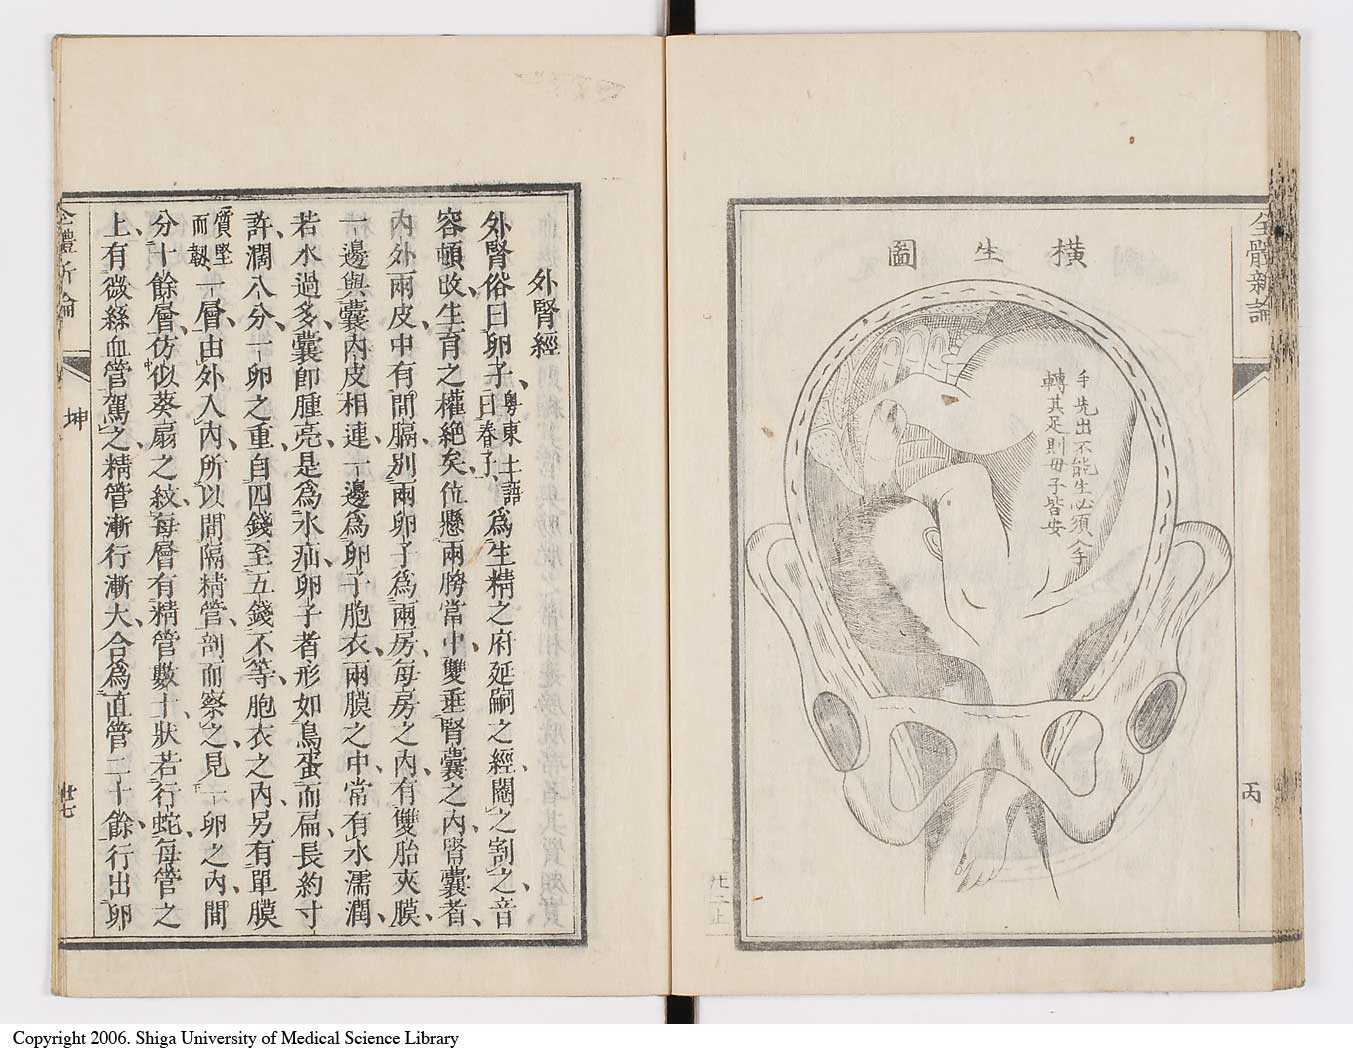 全體新論
丙
橫生圖
手先出不能生必須入手
轉其足則母子皆安
外腎經
外腎俗曰卵子、粵東土語曰春子、爲生精之府延嗣之經閹之割之、音
容頓改、生育之權絶矣、位懸兩胯當中、雙垂腎囊之內、腎囊者、
內外兩皮、中有間膈、別兩卵子、爲兩房、每房之內、有雙胎夾膜、
一邊與囊內皮相連、一邊爲卵子胞衣、兩膜之中、常有水濡潤、
若水過多、囊卽腫亮、是爲水疝、卵子者形如鳥蛋而扁、長約寸
許、濶八分、一卵之重、自四錢至五錢不等、胞衣之內、另有單膜
質堅而韌、一層、由外入內、所以間隔精管、剖而察之、見一卵之內、間
分十餘層、仿似葵扇之紋、每層有精管數十、狀若行蛇、每管之
上、有微絲血管駕之、精管漸行漸大、合爲直管二十餘、行出卵
全體新論
坤
廿七
Copyright 2006. Shiga University of Medical Science Library